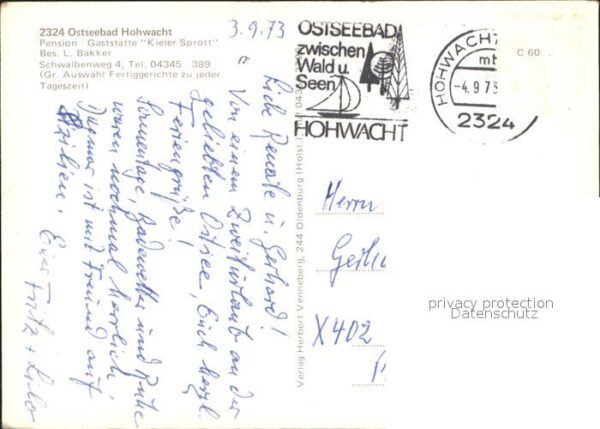 2324 Ostseebad Hohwacht
Pension - Gaststätte "Kieler Sprott"
Bes. L. Bakker
Schwalbenweg 4, Tel. 04345 389
(Gr. Auswahl Fertiggerichte zu jeder
Tageszeit)
3.9.73
Liebe Renate u. Gerhard!
Von einem Zweiturlaub an der
geliebten Ostsee, Euch herzl.
Feriengrüße!
Sonnentage, Badewetter und Ruhe
waren nochmal herrlich.
Dagmar ist mit Freund auf
Sizilien. Eure Fritz + Lilo
Verlag Herbert Venneberg, 244 Oldenburg (Holst.)
OSTSEEBAD
zwischen
Wald u.
Seen
HOHWACHT
HOHWACHT
mb
-4.9.73
2324
C 60
Herrn
X402
privacy protection
Datenschutz